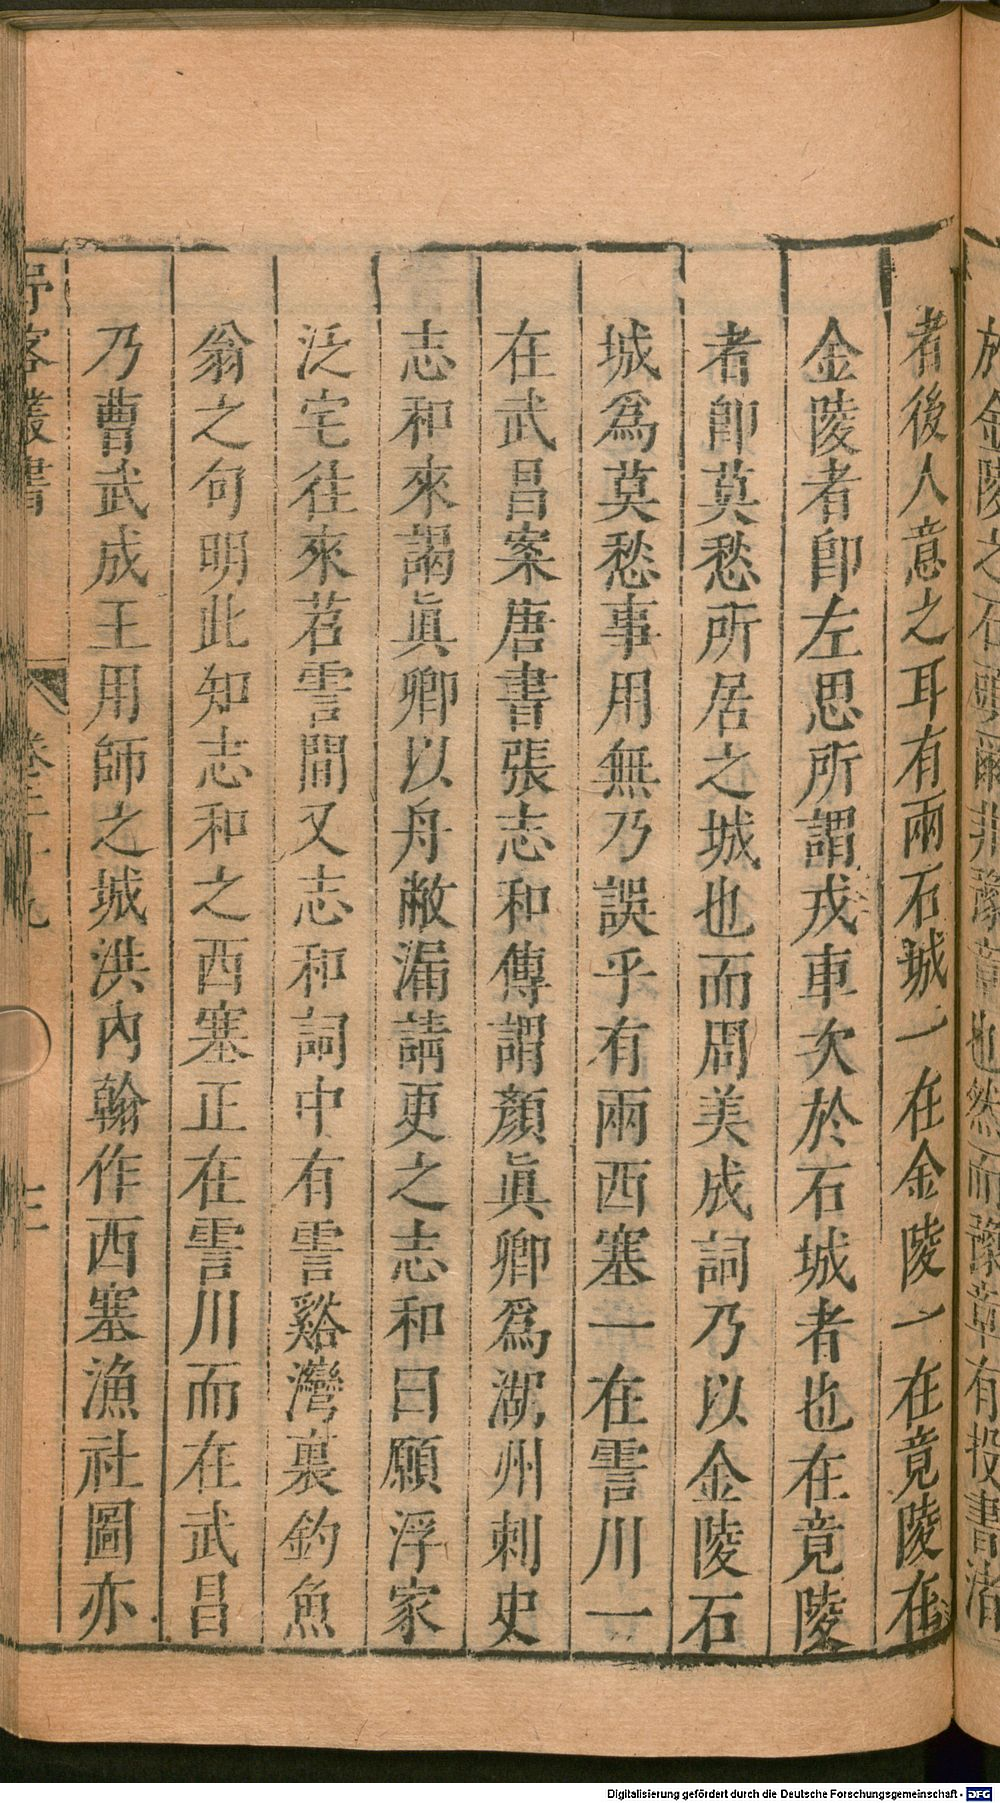 於金陵之石頭爾非豫章也然而豫章有投書渚
者後人意之耳有兩石城一在金陵一在竟陵在
金陵者卽左思所謂戎車次於石城者也在竟陵
者卽莫愁所居之城也而周美成詞乃以金陵石
城爲莫愁事用無乃誤乎有兩西塞一在霅川一
在武昌案唐書張志和傳謂顏眞卿爲湖州刺史
志和來謁眞卿以舟敝漏請更之志和曰願浮家
泛宅往來苕霅間又志和詞中有霅谿灣裏釣魚
翁之句明此知志和之西塞正在霅川而在武昌
乃曹武成王用師之城洪內翰作西塞漁社圖亦
野客叢書 卷二十九 三
Digitalisierung gefördert durch die Deutsche Forschungsgemeinschaft - DFG